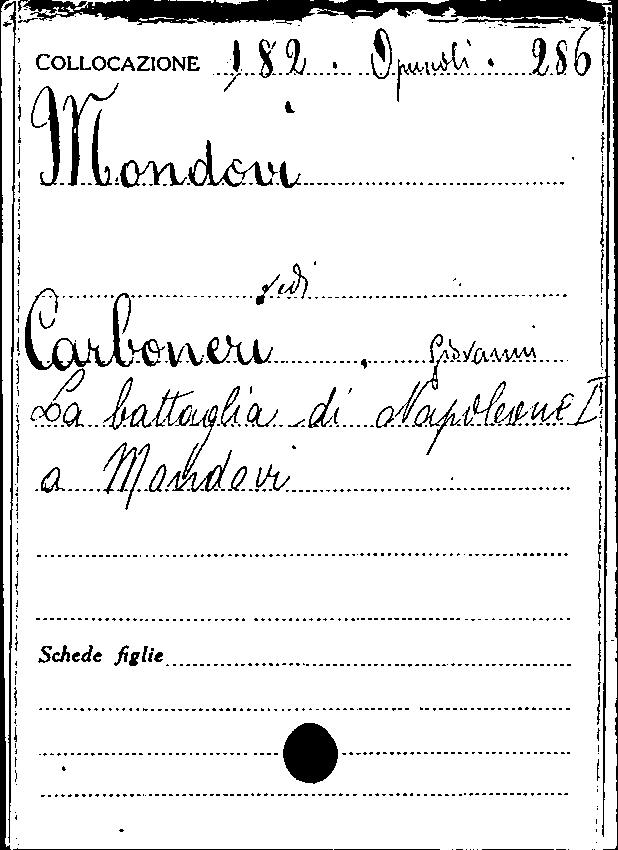 COLLOCAZIONE 182 . Opuscoli . 286
Mondovi
vedi
Carboneri , Giovanni
La battaglia di Napoleone I
a Mondovi
Schede figlie